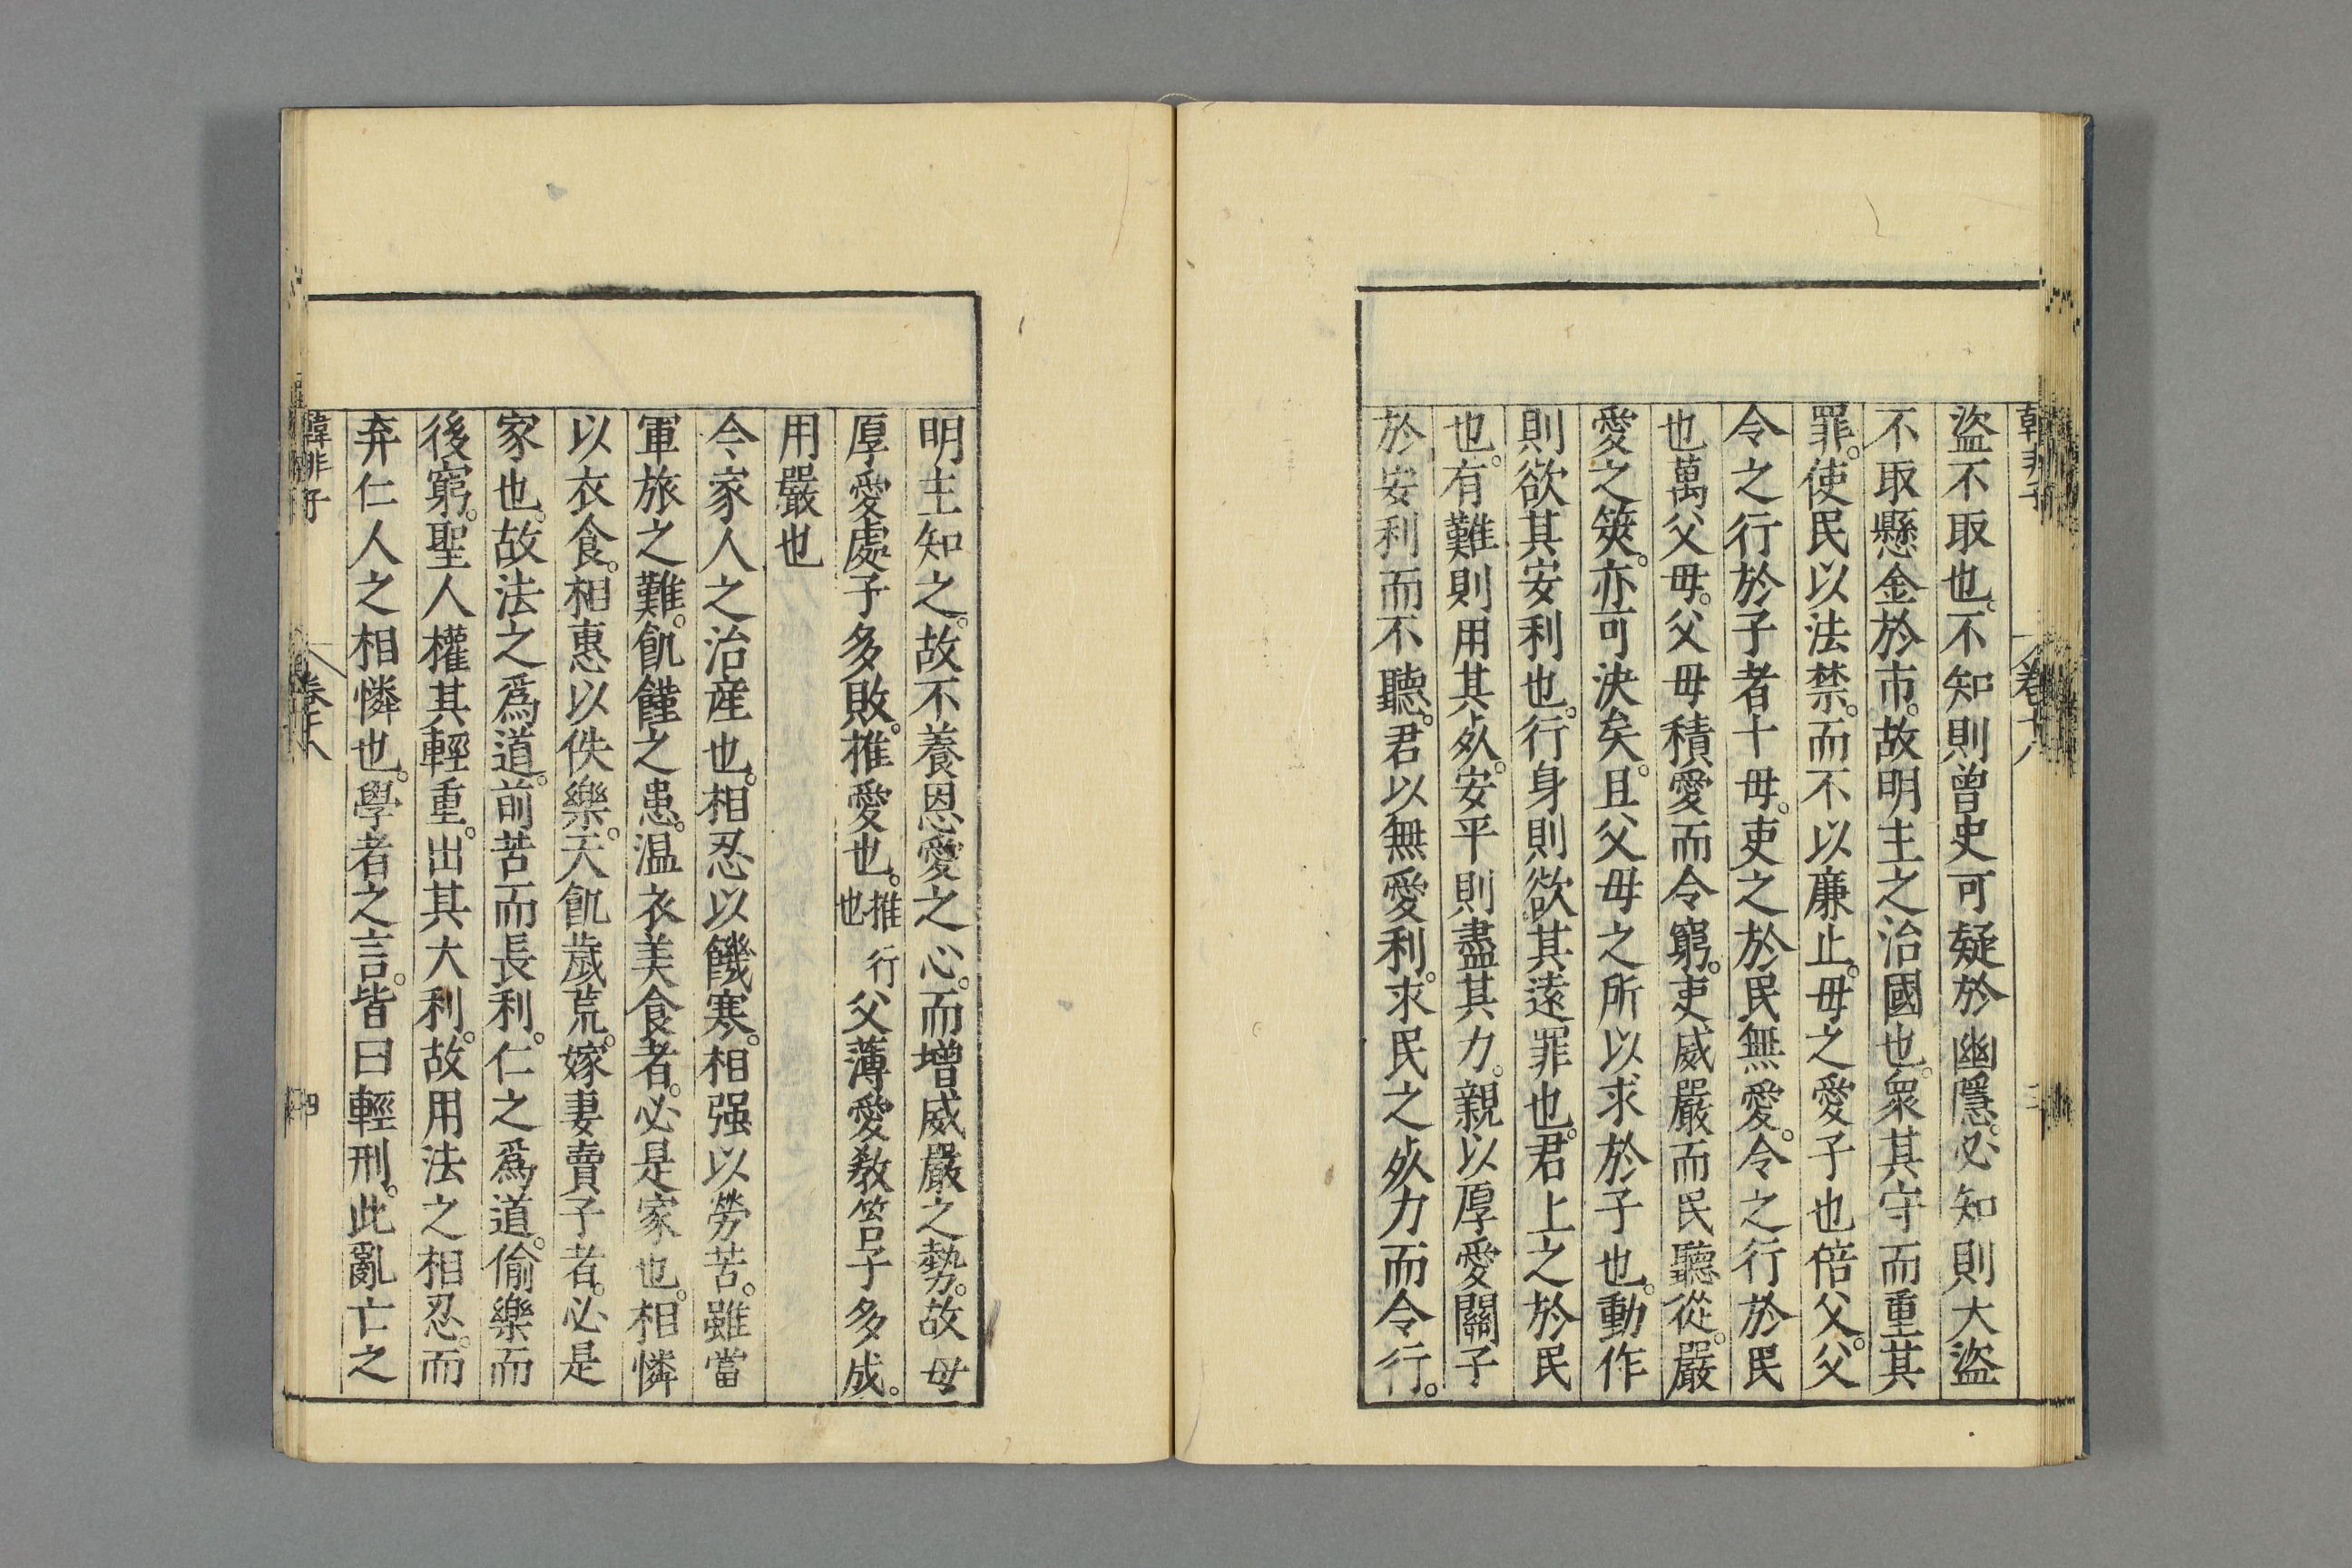 盜不取也。不知則曾史可疑於幽隱。必知則大盜
不取懸金於市。故明主之治國也。衆其守而重其
罪。使民以法禁。而不以廉止。毋之愛子也倍父。父
令之行於子者十毋。吏之於民無愛。令之行於民
也萬父毋。父毋積愛而令窮。吏威嚴而民聽從。嚴
愛之筴。亦可決矣。且父毋之所以求於子也。動作
則欲其安利也。行身則欲其遠罪也。君上之於民
也。有難則用其死。安平則盡其力。親以厚愛關子
於安利而不聽。君以無愛利。求民之死力而令行。
明主知之。故不養恩愛之心。而增威嚴之勢。故毋
厚愛處子多敗。推愛也。推行也父薄愛教笞子多成。
用嚴也
今家人之治産也。相忍以饑寒。相强以勞苦。雖當
軍旅之難。飢饉之患。温衣美食者。必是家也。相憐
以衣食。相惠以佚樂。天飢歲荒。嫁妻賣子者。必是
家也。故法之爲道。前苦而長利。仁之爲道。偷樂而
後窮。聖人權其輕重。出其大利。故用法之相忍。而
弃仁人之相憐也。學者之言。皆曰輕刑。此亂亡之
韓非子 卷十八 四